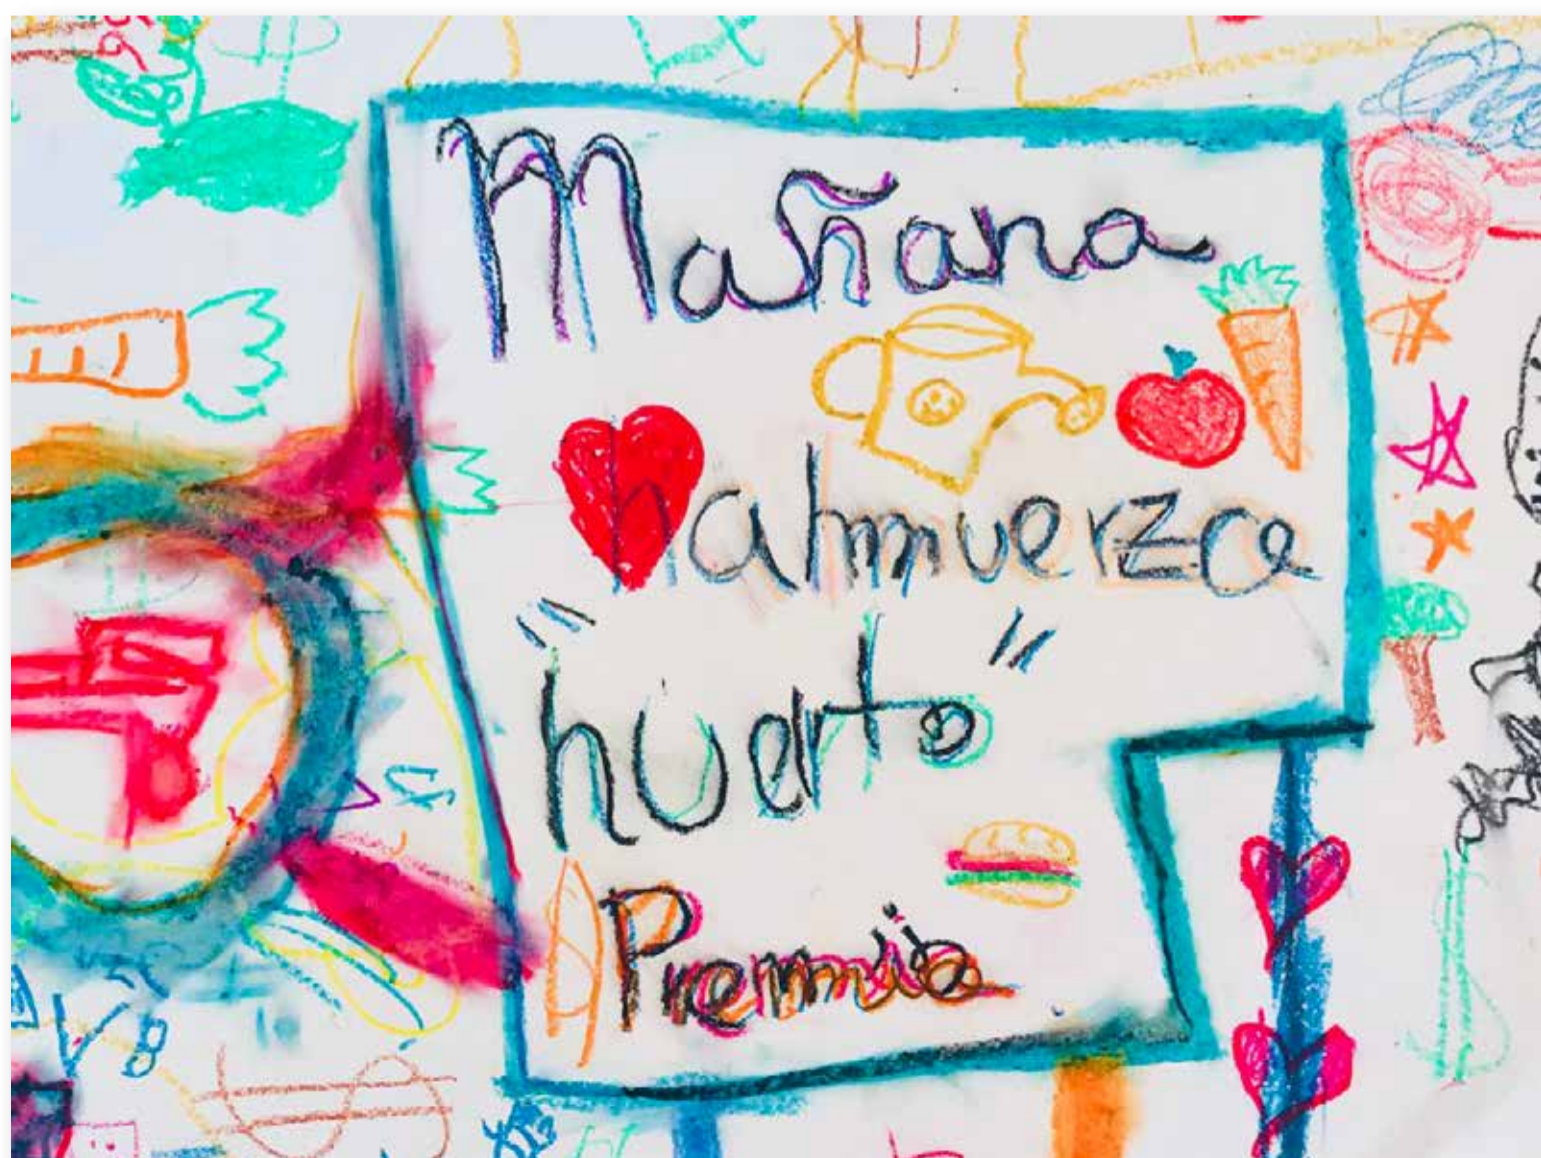 Mañana
almuerzca
"huerto"
Premio